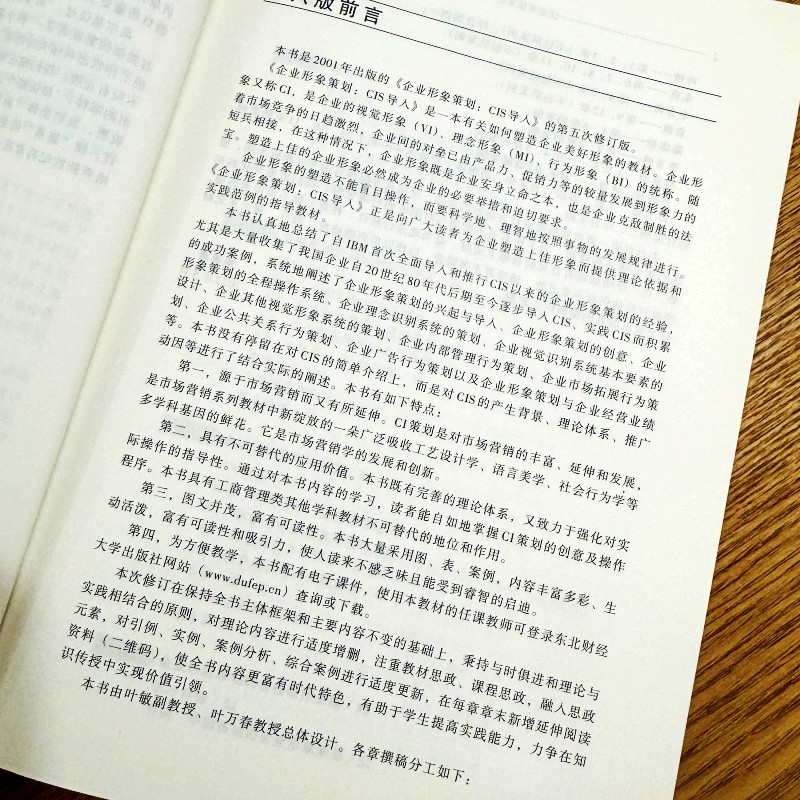 版前言
本书是2001年出版的《企业形象策划：CIS导入》的第五次修订版。
《企业形象策划：CIS导入》是一本有关如何塑造企业美好形象的教材。企业形
象又称CI，是企业的视觉形象（VI）、理念形象（MI）、行为形象（BI）的统称。随
着市场竞争的日趋激烈，企业间的对垒已由产品力、促销力等的较量发展到形象力的
短兵相接，在这种情况下，企业形象既是企业安身立命之本，也是企业克敌制胜的法
宝。塑造上佳的企业形象必然成为企业的必要举措和迫切要求。
企业形象的塑造不能盲目操作，而要科学地、理智地按照事物的发展规律进行。
《企业形象策划：CIS导入》正是向广大读者为企业塑造上佳形象而提供理论依据和
实践范例的指导教材。
本书认真地总结了自IBM首次全面导入和推行CIS以来的企业形象策划的经验，
尤其是大量收集了我国企业自20世纪80年代后期至今逐步导入CIS、实践CIS而积累
的成功案例，系统地阐述了企业形象策划的兴起与导入、企业形象策划的创意、企业
形象策划的全程操作系统、企业理念识别系统的策划、企业视觉识别系统基本要素的
设计、企业其他视觉形象系统的策划、企业内部管理行为策划、企业市场拓展行为策
划、企业公共关系行为策划、企业广告行为策划以及企业形象策划与企业经营业绩
等。本书没有停留在对CIS的简单介绍上，而是对CIS的产生背景、理论体系、推广
动因等进行了结合实际的阐述。本书有如下特点：
第一，源于市场营销而又有所延伸。CI策划是对市场营销的丰富、延伸和发展，
是市场营销系列教材中新绽放的一朵广泛吸收工艺设计学、语言美学、社会行为学等
多学科基因的鲜花。它是市场营销学的发展和创新。
第二，具有不可替代的应用价值。本书既有完善的理论体系，又致力于强化对实
际操作的指导性。通过对本书内容的学习，读者能自如地掌握CI策划的创意及操作
程序。本书具有工商管理类其他学科教材不可替代的地位和作用。
第三，图文并茂，富有可读性。本书大量采用图、表、案例，内容丰富多彩、生
动活泼，富有可读性和吸引力，使人读来不感乏味且能受到睿智的启迪。
第四，为方便教学，本书配有电子课件，使用本教材的任课教师可登录东北财经
大学出版社网站（www.dufep.cn）查询或下载。
本次修订在保持全书主体框架和主要内容不变的基础上，秉持与时俱进和理论与
实践相结合的原则，对理论内容进行适度增删，注重教材思政、课程思政，融入思政
元素，对引例、实例、案例分析、综合案例进行适度更新，在每章章末新增延伸阅读
资料（二维码），使全书内容更富有时代特色，有助于学生提高实践能力，力争在知
识传授中实现价值引领。
本书由叶敏副教授、叶万春教授总体设计。各章撰稿分工如下：